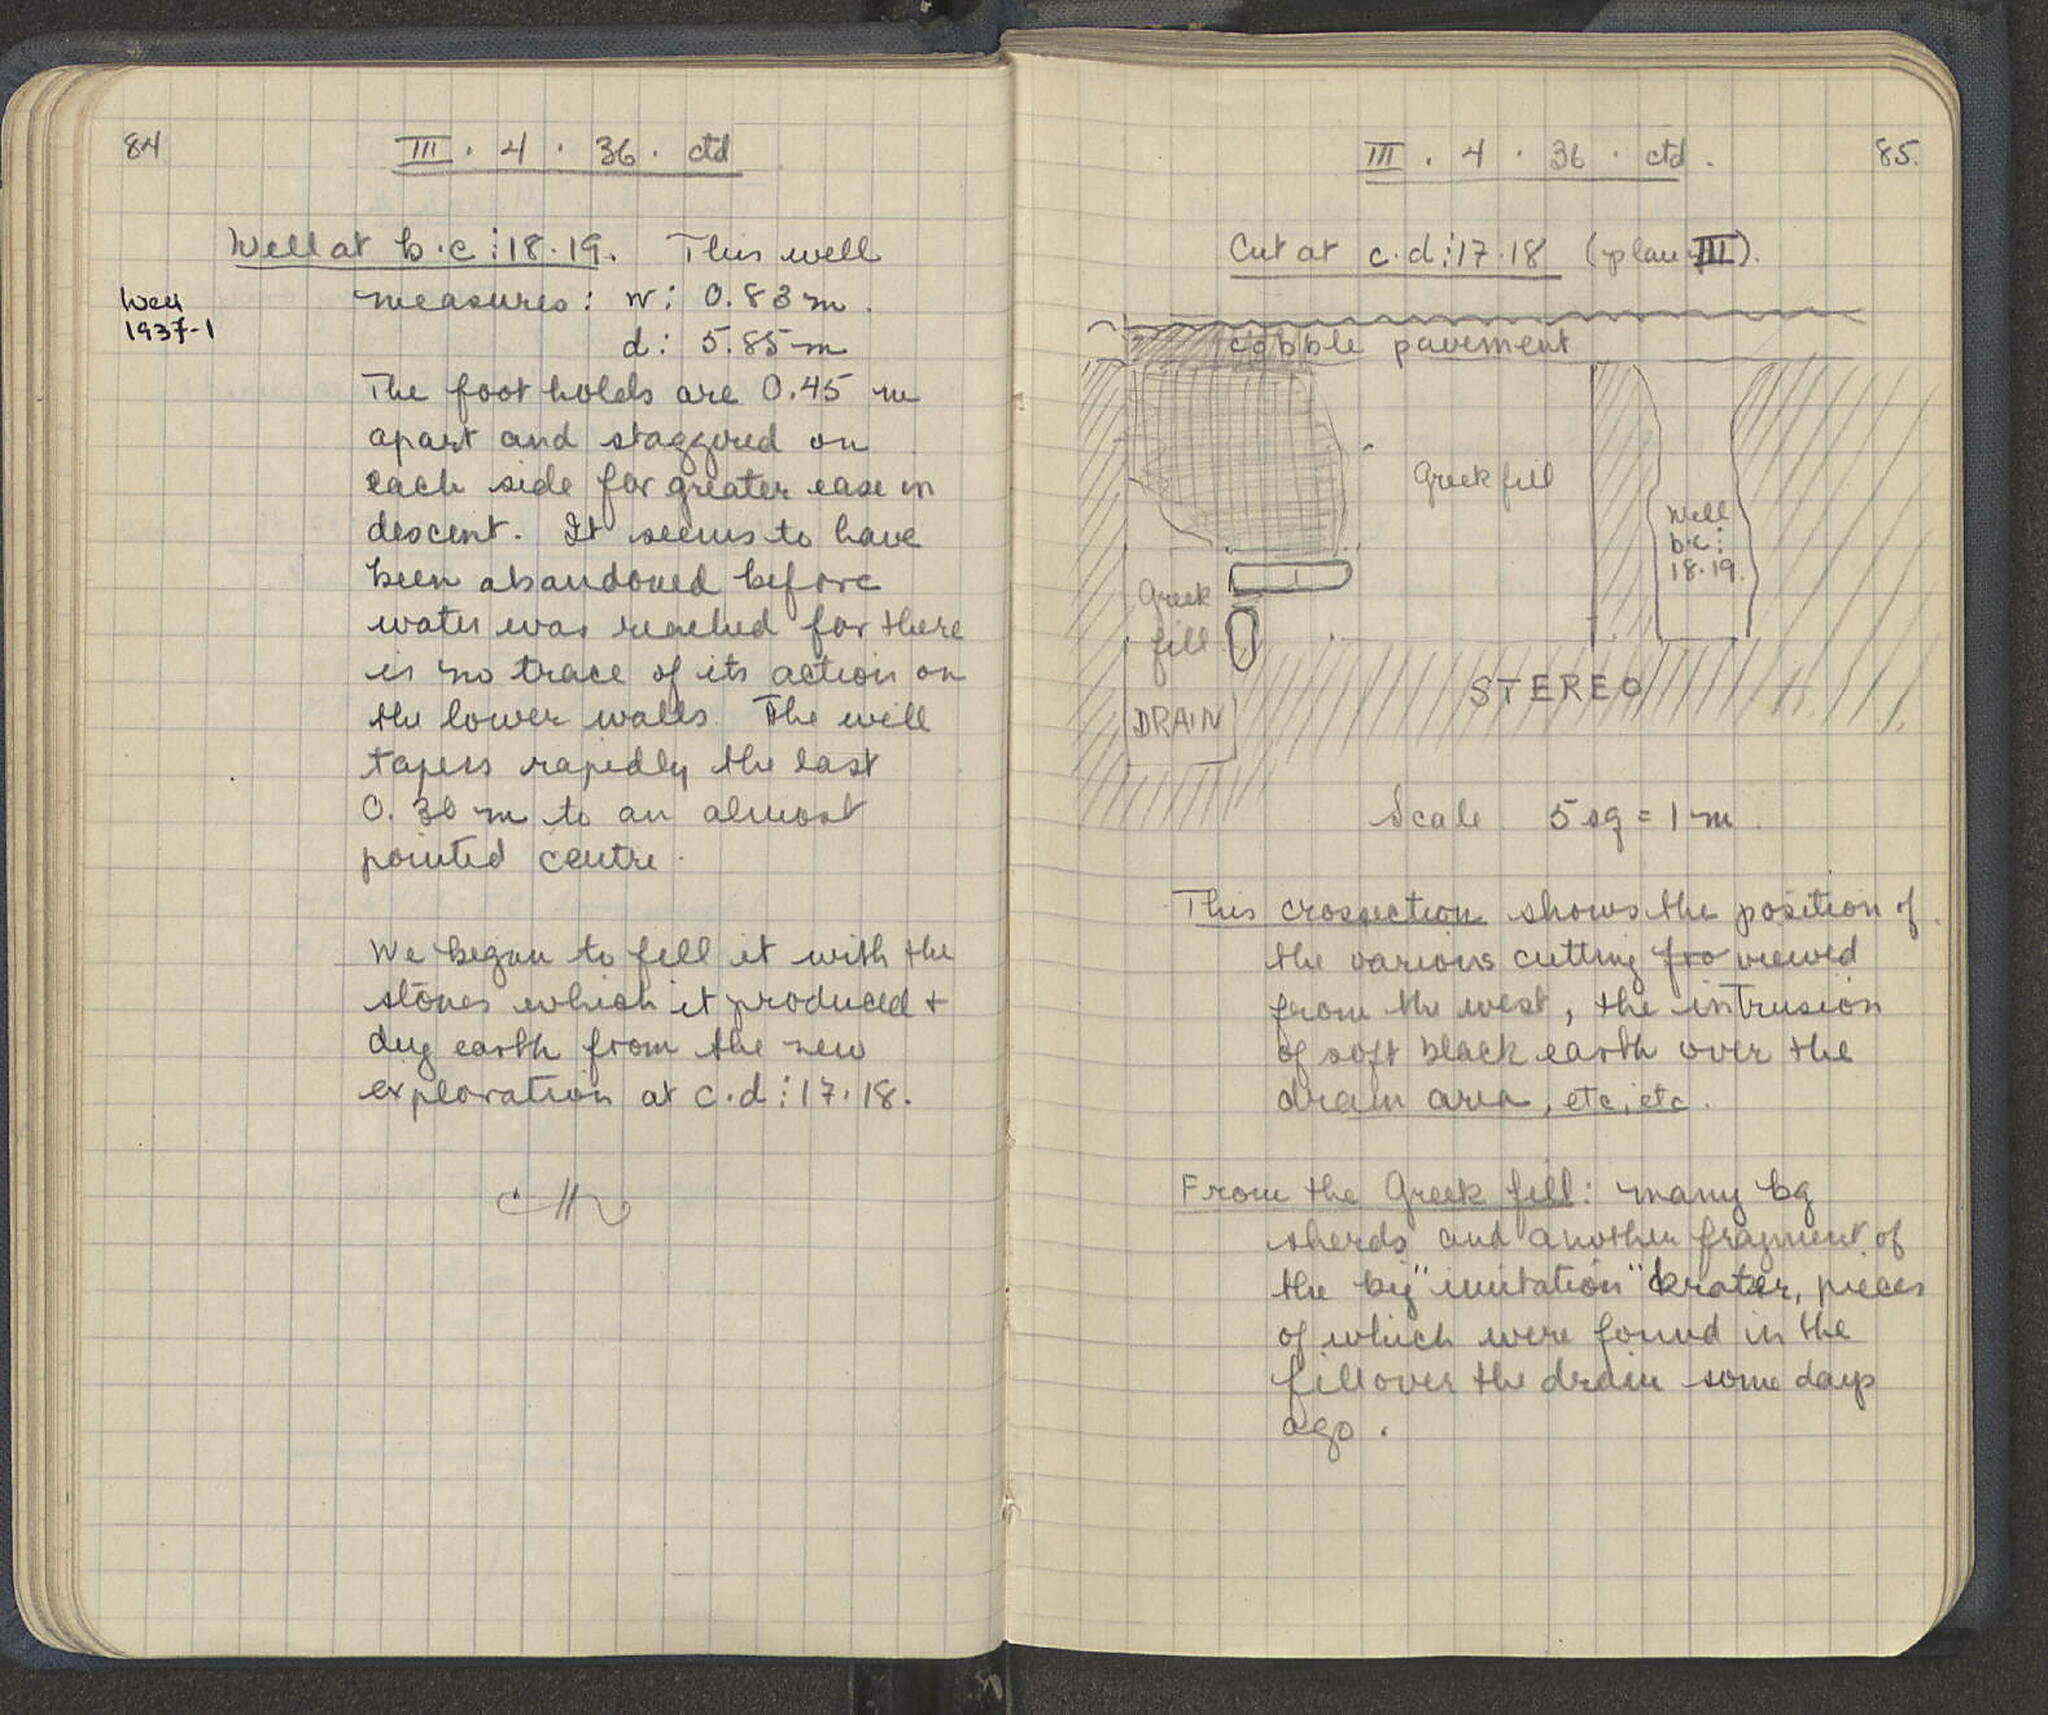 84
III . 4 . 36 . ctd
Well at b.c:18.19. This well
Well
1937-1
measures: w: 0.83 m.
d: 5.85 m
The foot holds are 0.45 m
apart and staggered on
each side for greater ease in
descent. It seems to have
been abandoned before
water was reached for there
is no trace of its action on
the lower walls. The well
tapers rapidly the last
0.30 m to an almost
pointed centre.
We began to fill it with the
stones which it produced +
dug earth from the new
exploration at c.d:17.18.
III . 4 . 36 . ctd .
85.
Cut at c.d:17.18 (plan III).
cobble pavement
Greek fill
Well
b.c:
18.19.
Greek
fill
STEREO
DRAIN
Scale 5 sq = 1 m.
This crossection shows the position of
the various cutting fro viewed
from the west, the intrusion
of soft black earth over the
drain area, etc, etc.
From the Greek fill: many bg
sherds and another fragment of
the big "imitation" krater, pieces
of which were found in the
fill over the drain some days
ago.